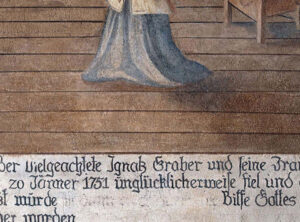 der Vielgeachtete Ignatz Graber und seine Frau
20 Jänner 1751 unglücklicherweise fiel und
st würde Bitte Gottes
der worden